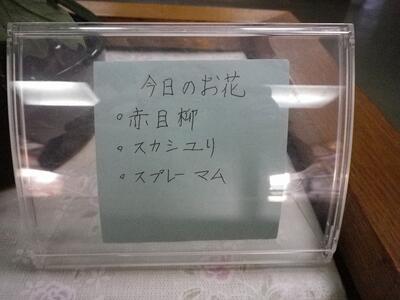 今日のお花
。赤目柳
。スカシユリ
。スプレーマム